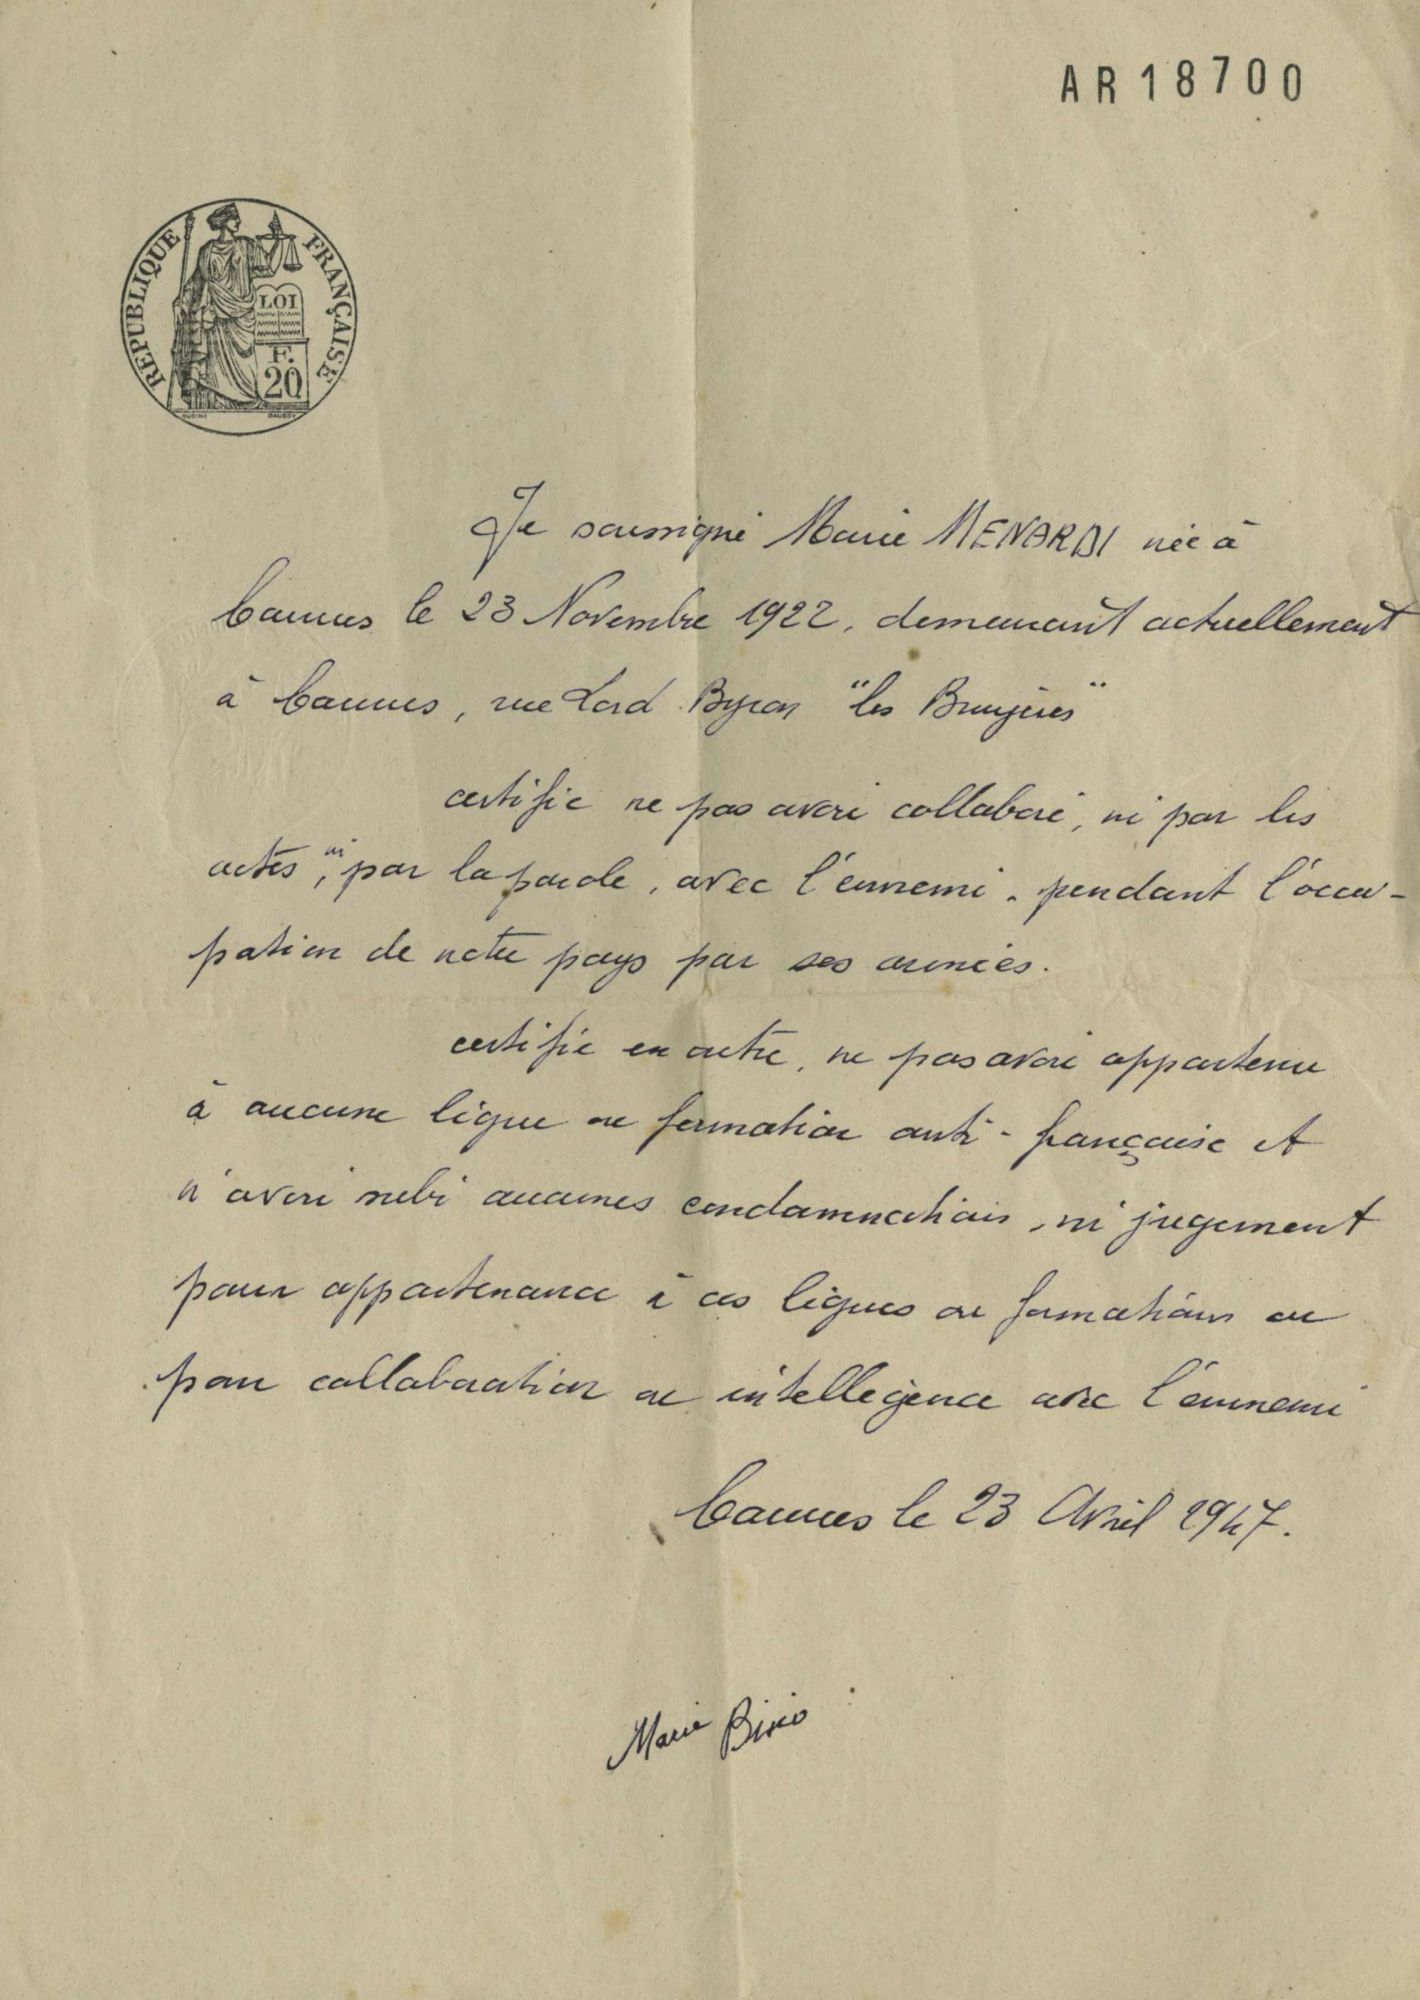 AR18700
RÉPUBLIQUE FRANÇAISE
LOI
F.
20
Je soussigné Marie MENARDI née à
Cannes le 23 Novembre 1922, demeurant actuellement
à Cannes, rue Lord Byron "les Bruyères"
certifie ne pas avoir collaboré, ni par les
actes, ni par la parole, avec l'ennemi, pendant l'occu-
pation de notre pays par ses armées.
certifie en outre, ne pas avoir appartenu
à aucune ligue ou formation anti-française et
n'avoir subi aucunes condamnations, ni jugement
pour appartenance à ces ligues ou formations ou
pour collaboration ou intellegence avec l'ennemi
Cannes le 23 Avril 1947.
Marie